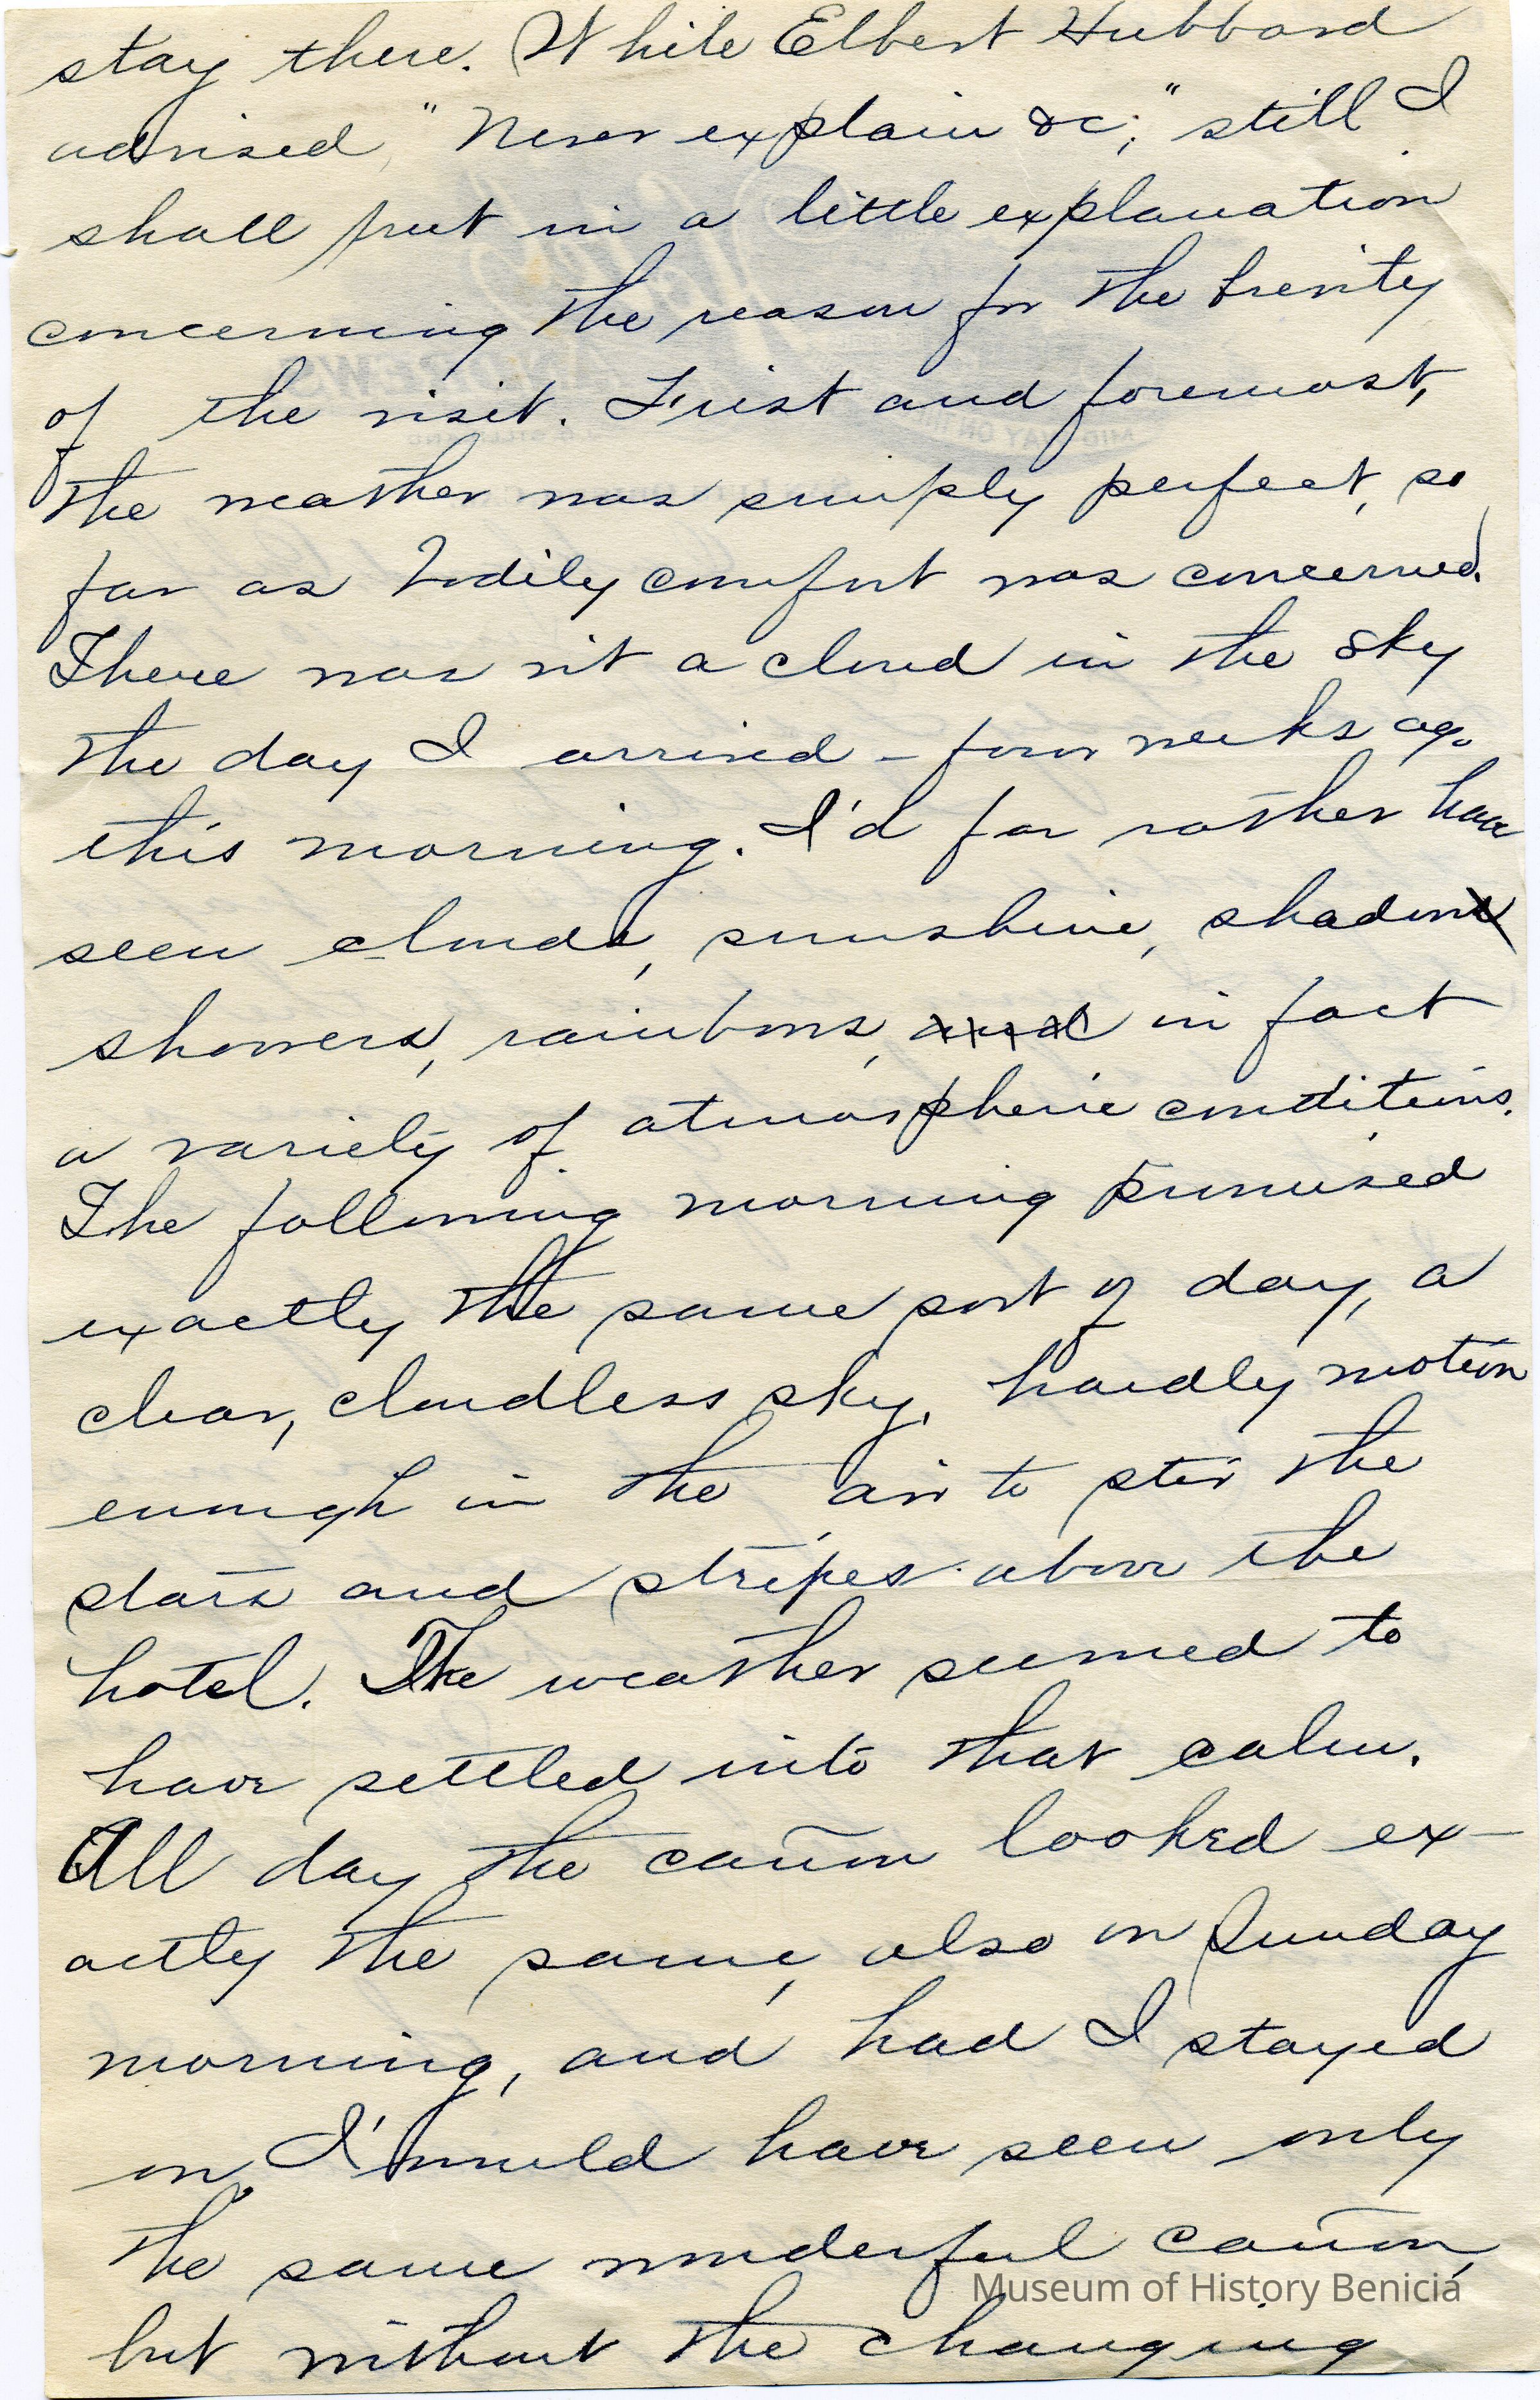 stay there. While Elbert Hubbard
advised "Never explain &c;" still I
shall put in a little explanation
concerning the reason for the brevity
of the visit. First and foremost,
the weather was simply perfect, so
far as bodily comfort was concerned.
There was not a cloud in the sky
the day I arrived - four weeks ago
this morning. I'd far rather have
seen clouds, sunshine, shadow
showers, rainbows, and in fact
a variety of atmospheric conditions.
The following morning promised
exactly the same sort of day, a
clear, cloudless sky, hardly motion
enough in the air to stir the
stars and stripes above the
hotel. The weather seemed to
have settled into that calm.
All day the cañon looked ex-
actly the same, also on Sunday
morning, and had I stayed
on, I would have seen only
the same wonderful cañon,
but without the changing
Museum of History Benicia